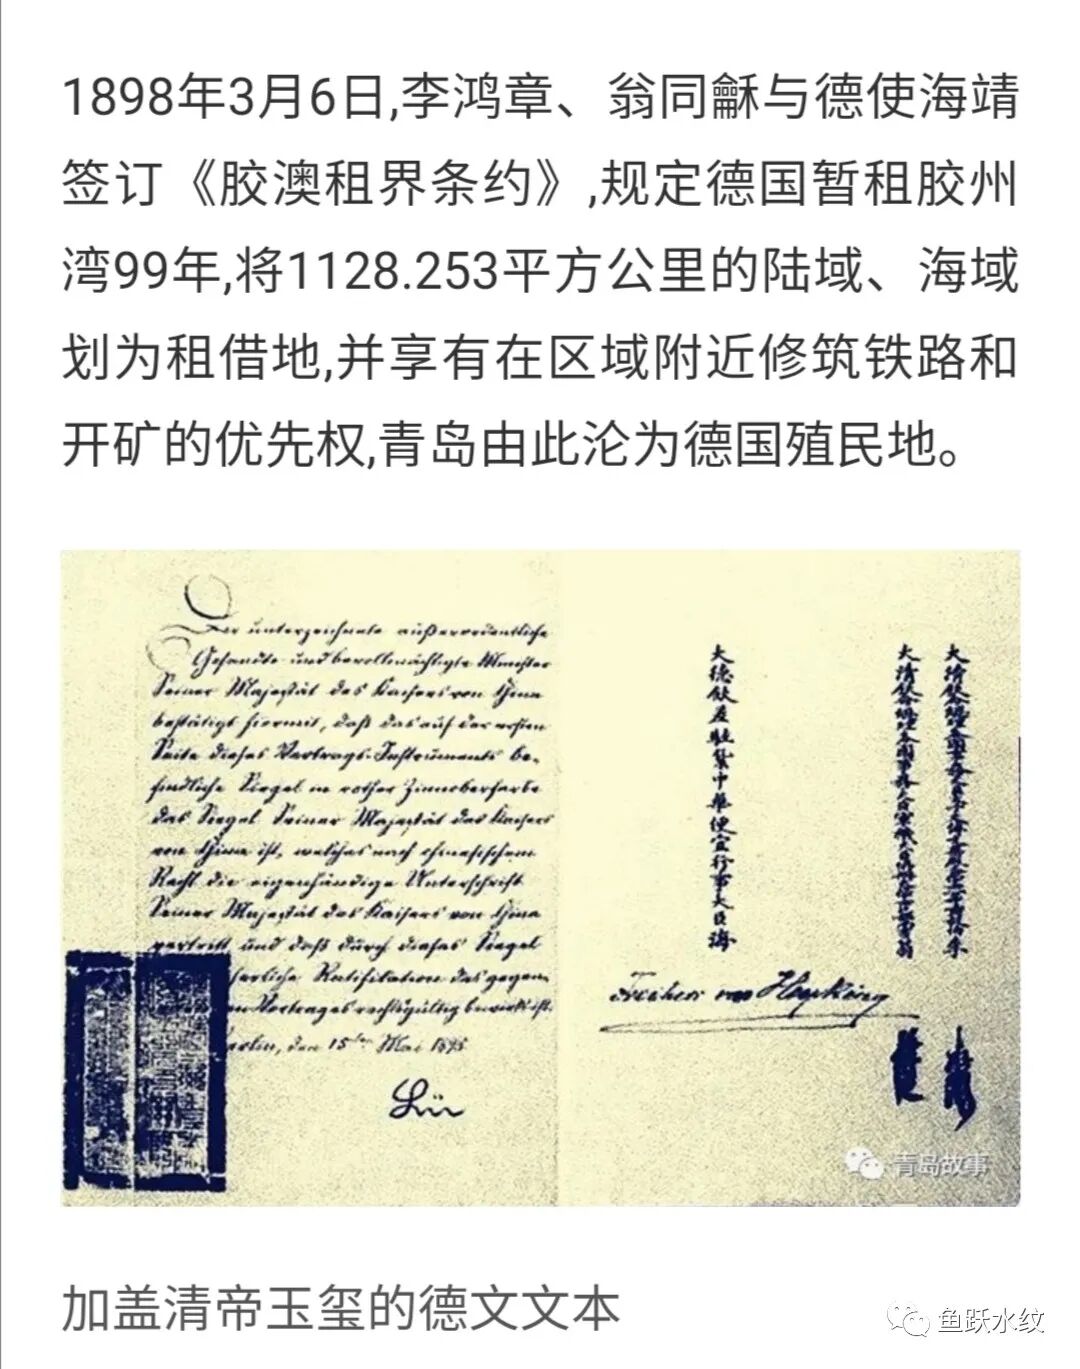 1898年3月6日,李鸿章、翁同龢与德使海靖
签订《胶澳租界条约》,规定德国暂租胶州
湾99年,将1128.253平方公里的陆域、海域
划为租借地,并享有在区域附近修筑铁路和
开矿的优先权,青岛由此沦为德国殖民地。
Der unterzeichnete außerordentliche
Gesandte und bevollmächtigte Minister
Seiner Majestät des Kaisers von China
bestätigt hiermit, daß das auf der ersten
Seite dieses Vertrags-Instruments be-
findliche Siegel in rother Zinnoberfarbe
das Siegel Seiner Majestät des Kaisers
von China ist, welches nach chinesischem
Recht die eigenhändige Unterschrift
Seiner Majestät des Kaisers von China
vertritt und daß durch dieses Siegel
Ratifikation des gegen-
Vertrages rechtsgültig bewirkt ist.
den 15ten Mai 1898
Lüü
大清欽
大清欽
大德欽差駐紮中華便宜行事大臣海
Freiherr von Heyking
青岛故事
加盖清帝玉玺的德文文本
鱼跃水纹